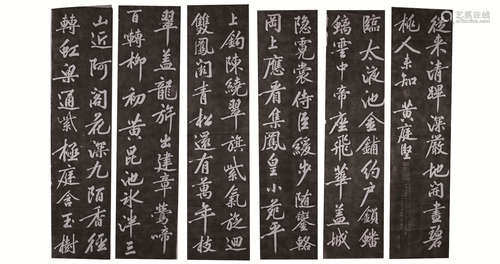 翠蓋龍旂出建章鶯啼
百轉柳初黃昆池冰泮三
山近阿閣花深九陌香徑
轉紅梁通紫極庭含玉樹
隱霓裳侍臣緩步隨鑾輅
岡上應看集鳳皇小苑平
臨太液池金鋪約戶鎖蟠
螭雲中帝座飛華蓋城
上鉤陳繞翠旗紫氣旋迴
雙鳳闕青松還有萬年枝
從來清蹕深嚴地開盡碧
桃人未知 黃庭堅